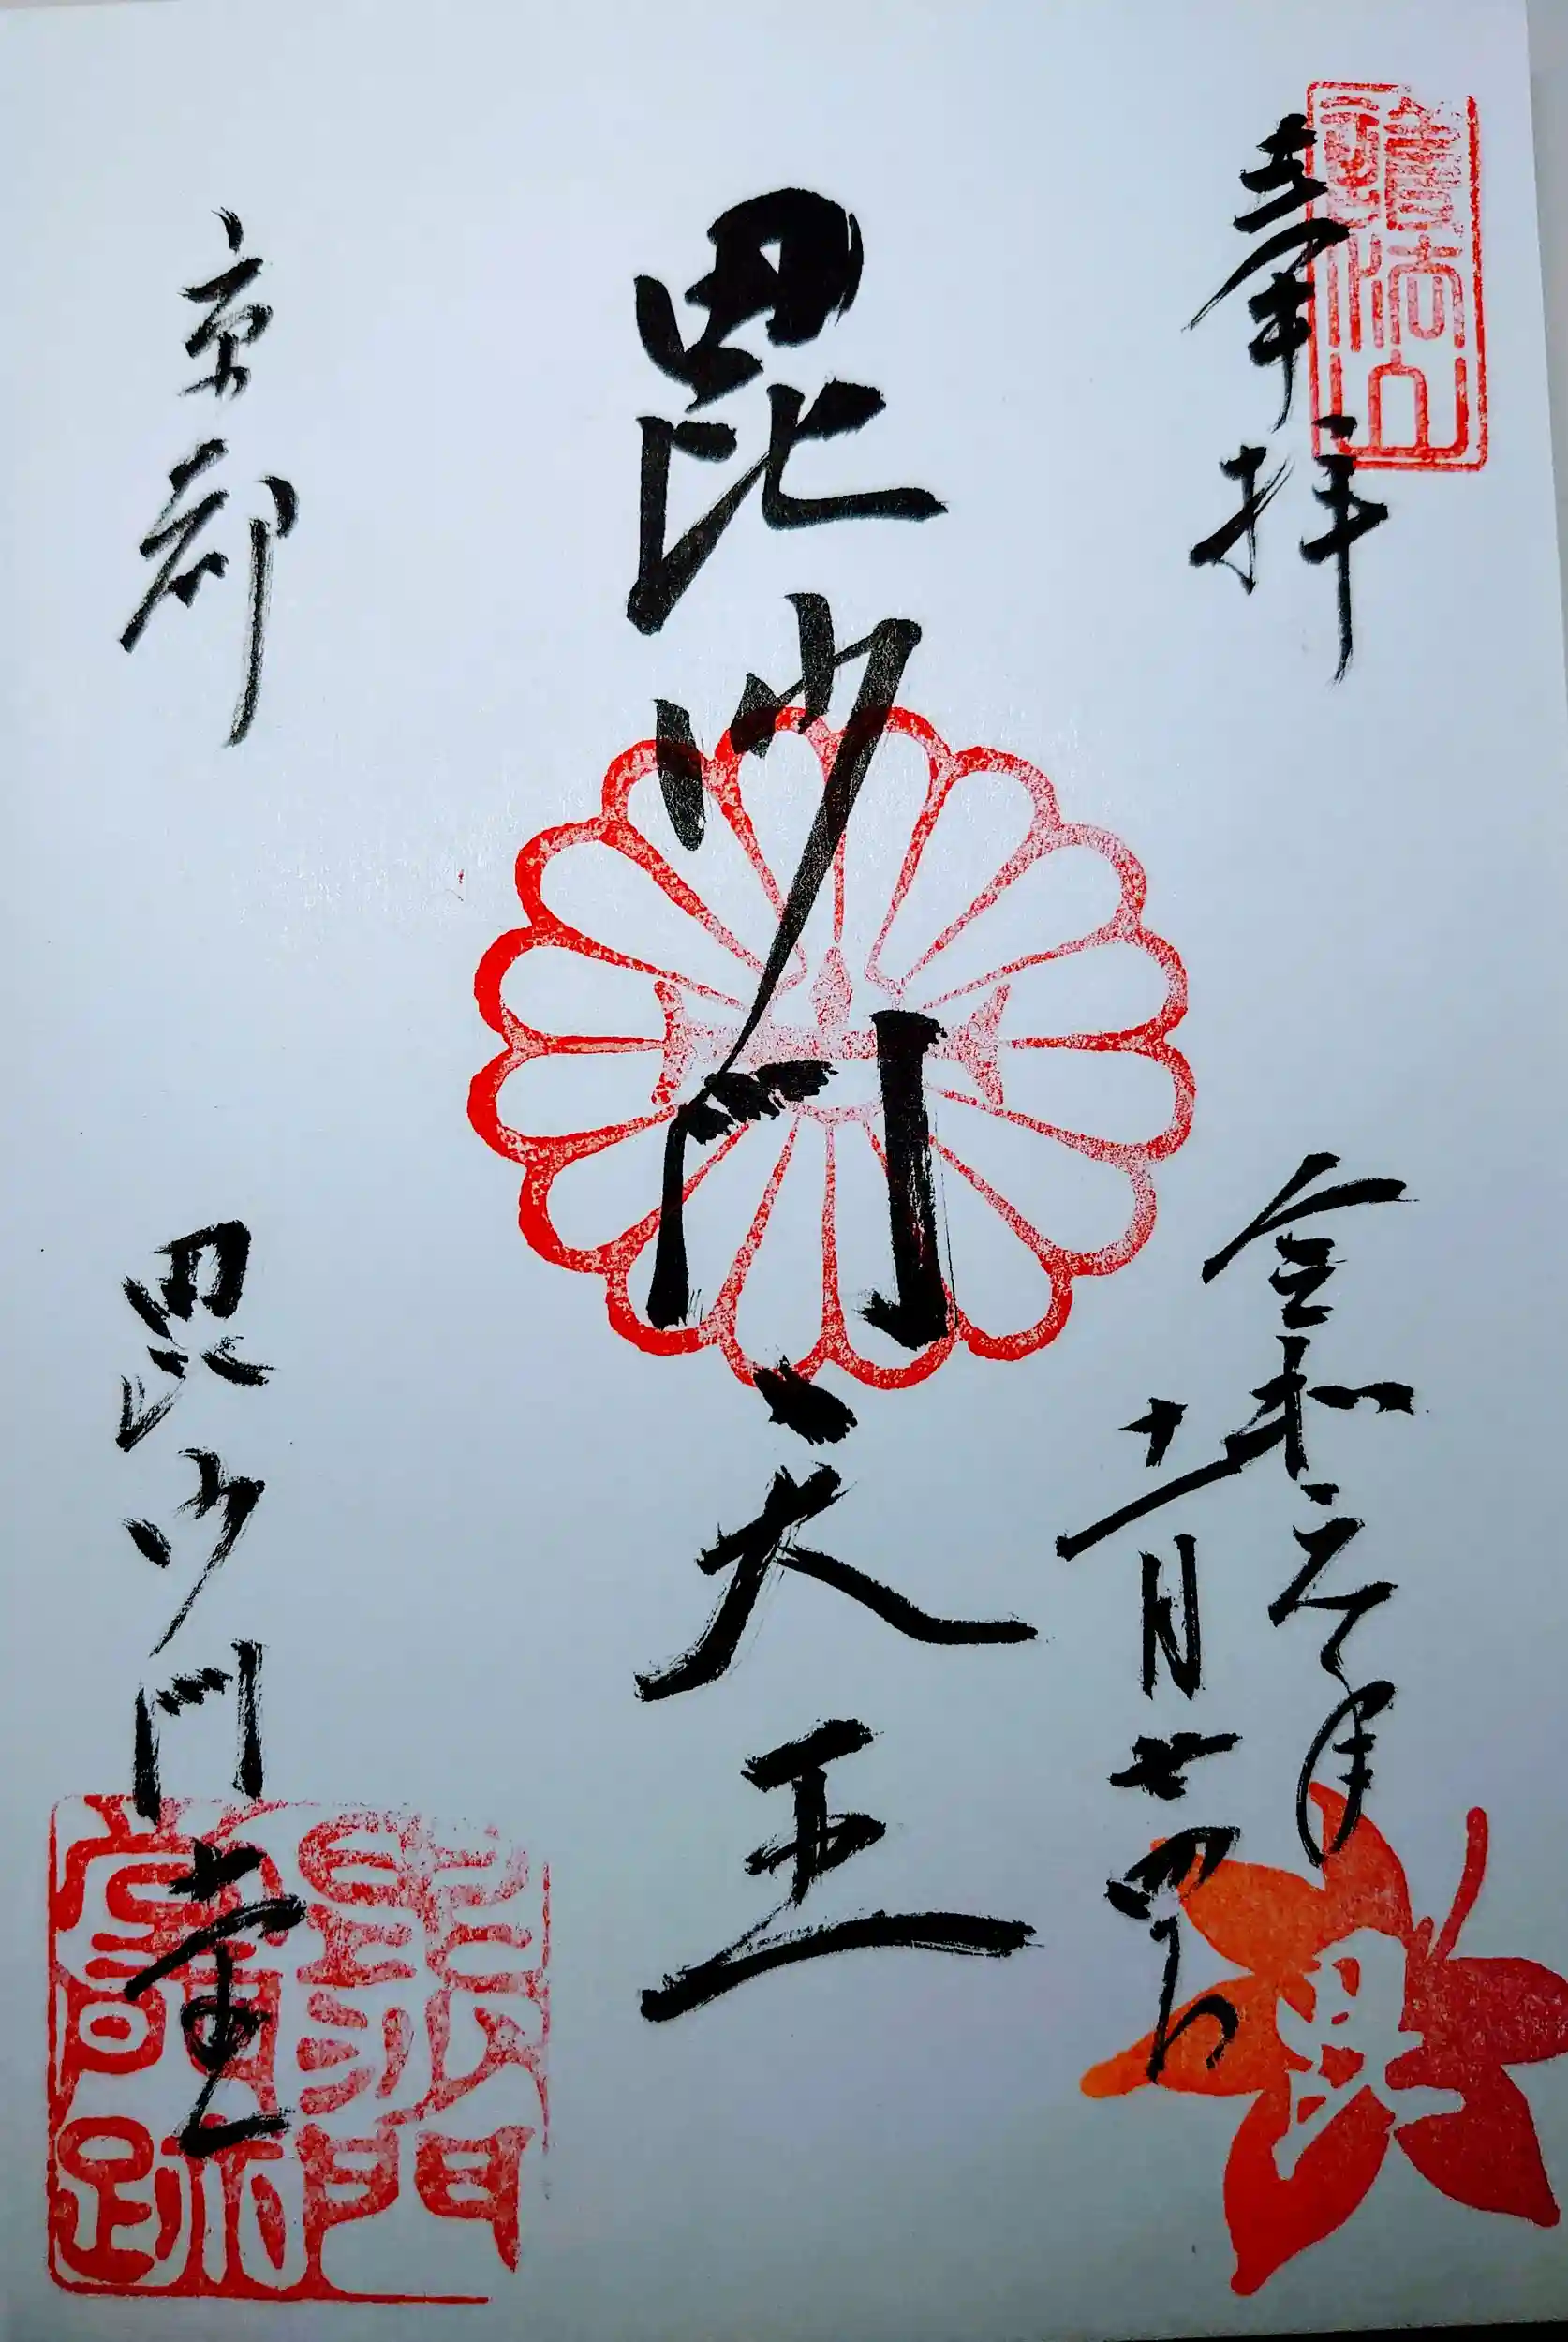 奉拝
護法山
令和元年
十一月廿四日
毘
毘沙門天王
京都
毘沙門堂